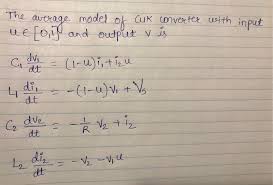 The average model of CUK converter with input
u ∈ [0,1] and output v is
C₁ dv₁/dt = (1-u)i₁ + i₂u
L₁ di₁/dt = -(1-u)v₁ + Vs
C₂ dv₂/dt = -1/R v₂ + i₂
L₂ di₂/dt = -v₂ - v₁u